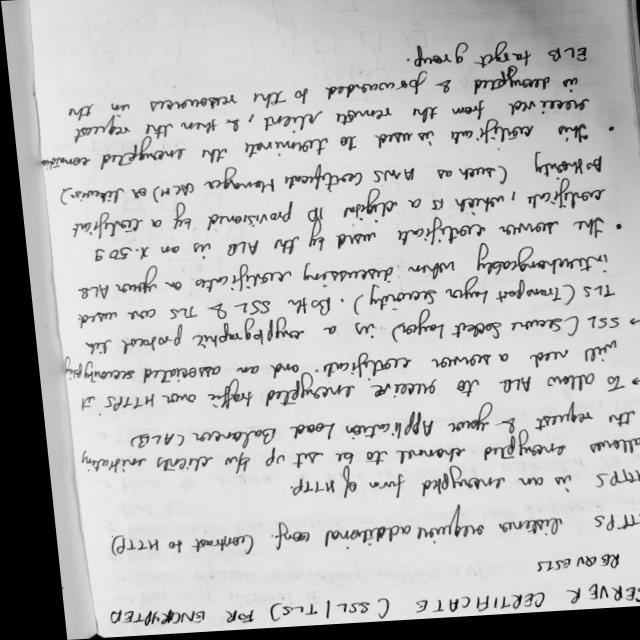 SERVER CERTIFICATE (SSL/TLS) FOR ENCRYPTED
REQUESTS
HTTPS listens require additional conf. (contrast to HTTP)
HTTPS is an encrypted form of HTTP
allows encrypted channel to be set up the clients initiating
the request & your Application Load Balancer (ALB)
→ To allow ALB to receive encrypted traffic over HTTPS it
will need a server certificate and an associated security
→ SSL (Secure Socket Layer) is a cryptographic protocol like
TLS (Transport Layer Security). Both SSL & TLS are used
interchangeably when discussing certificates on your ALB
• The server certificate used by the ALB is an X.509
certificate, which is a digital ID provisioned by a certificate
Authority (such as AWS Certificate Manager (ACM) or likewise).
• This certificate is used to terminate the encrypted
received from the remote client, & then the request
is decrypted & forwarded to the resources in the
ELB target group.